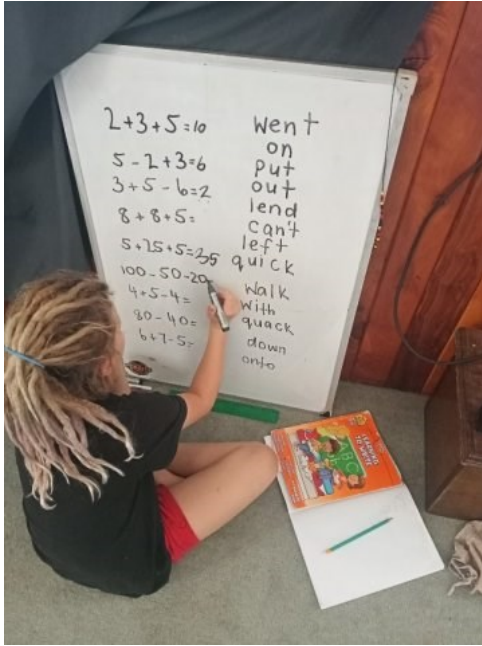 2+3+5=10
5-2+3=6
3+5-6=2
8+8+5=
5+25+5=35
100-50-20
4+5-4=
80-40=
6+7-5=
went
on
put
out
lend
can't
left
quick
walk
with
quack
down
onto
LEARNING
TO WRITE
ABC